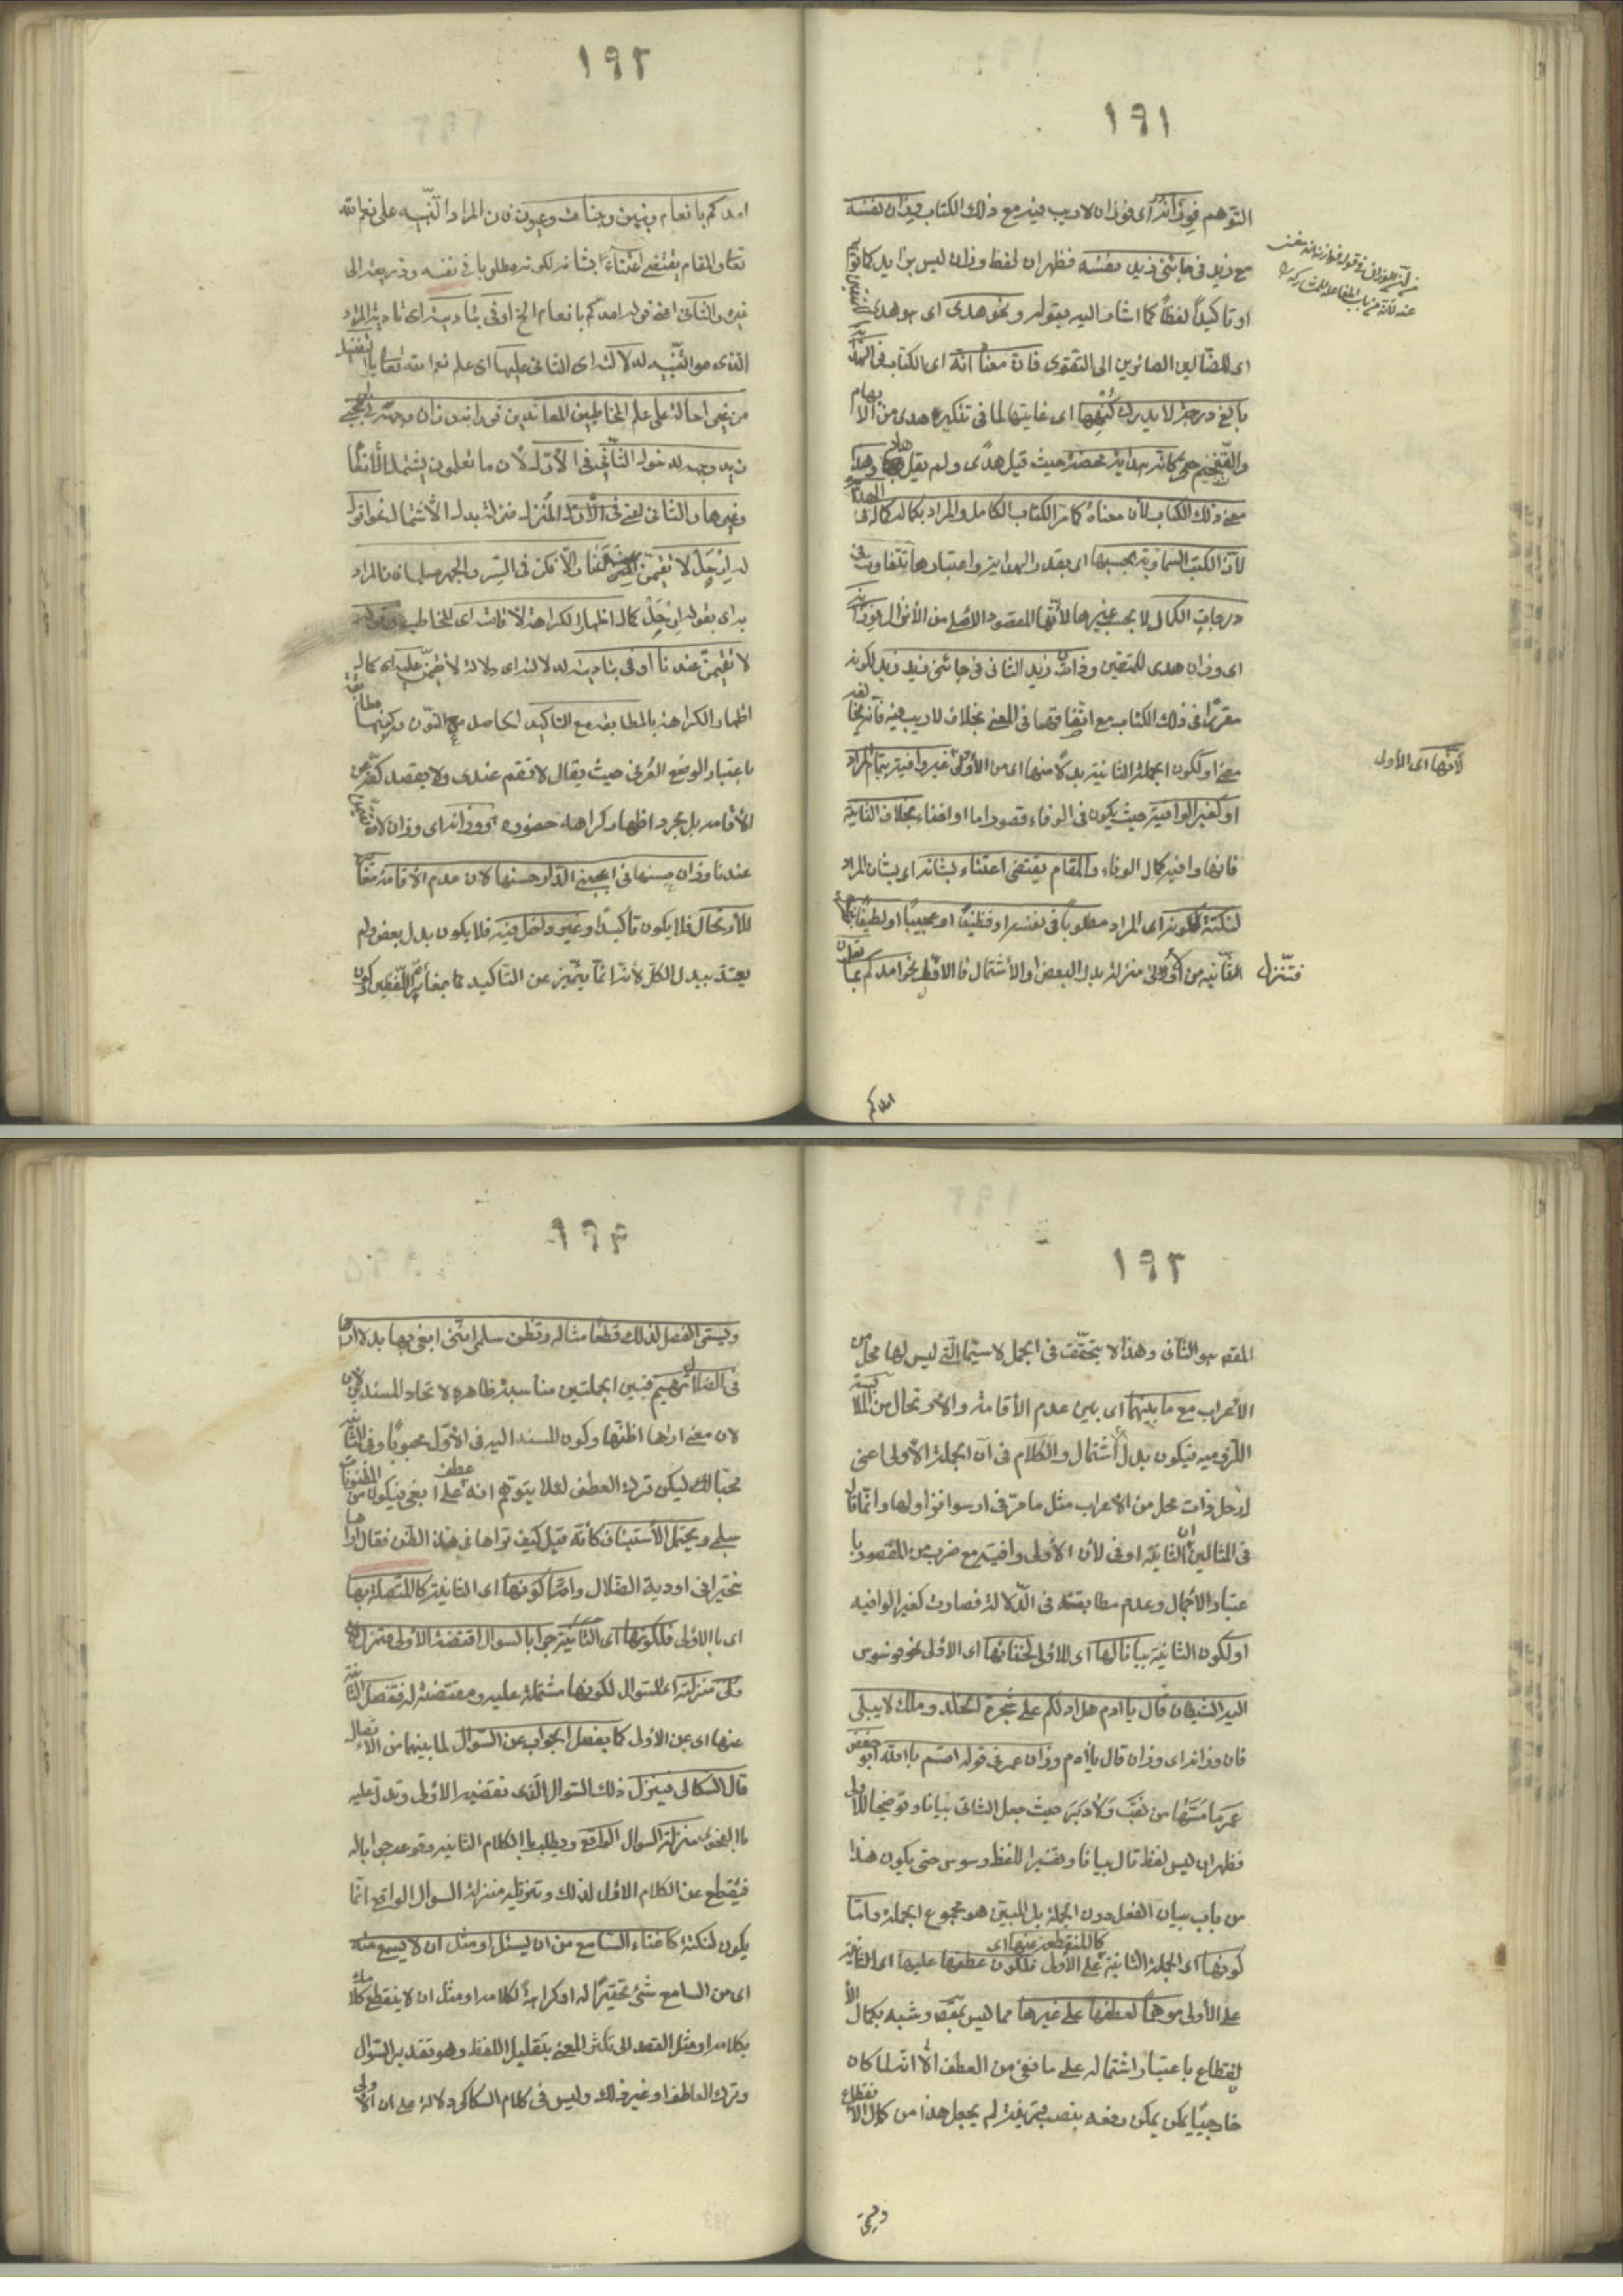 ١٩١
التوهم فوزانه اى فوزان لاريب فيه مع ذلك الكتاب وزان نفسه
مع زيد فى جاءنى زيد نفسه فظهر ان لفظ وزان ليس بزايد كما توهم
او تاكيداً لفظياً كما اشار اليه بقوله ونحو هدى اى هو هدى للمتقين
اى للضالين الصائرين الى التقوى فان معناه انه اى الكتاب فى الهداية
بالغ درجة لا يدرك كنهها اى غايتها لما فى تنكير هدى من الابهام
والتفخيم حتى كانه هداية محضة حيث قيل هدًى ولم يقل هاد وهذا
معنى ذلك الكتاب لأن معناه كما مر الكتاب الكامل والمراد بكماله كماله فى الهداية
لأن الكتب السماوية بحسبها اى بقدر الهداية واعتبارها تتفاوت فى
درجات الكمال لا بحسب غيرها لأنها المقصود الاصلى من الأنزال فوزانه
اى وزان هدى للمتقين وزان زيد الثانى فى جاءنى زيد زيد لكونه
مقررًا فى ذلك الكتاب مع اتفاقهما فى المعنى بخلاف لاريب فيه فانه يخالفه
معنى او لكون الجملة الثانية بدلاً منها اى من الأولى لأنها اى الأولى غير وافية بتمام المراد
او كغير الوافية حيث يكون فى الوفاء قصور ما او اخفاء بخلاف الثانية
فانها وافية كمال الوفاء والمقام يقتضى اعتناء بشانه اى بشان المراد
لنكتة ككونه اى المراد مطلوباً فى نفسه او فظيعًا او عجيبًا او لطيفًا
فتنزل الثانية من الأولى منزلة بدل البعض او الأشتمال فالاول نحو امدكم بما تعلمون
امدكم
١٩٢
امدكم بانعام وبنين وجنات وعيون فان المراد التنبيه على نعم الله
تعالى والمقام يقتضى اعتناء بشانه لكونه مطلوبا فى نفسه وذريعة الى
غيره والثانى اعنى قوله امدكم بانعام الخ اوفى بتاديته اى تادية المراد
الذى هو التنبيه لدلالته اى الثانى عليها اى على نعم الله تعالى بالتفصيل
من غير احالة على علم المخاطبين المعاندين فوزانه وزان وجهه فى اعجبنى
زيد وجهه لدخول الثانى فى الأول لأن ما تعلمون يشتمل الأنعام
وغيرها والثانى اعنى فى الأول المنزل منزلة بدل الأشتمال نحو اقول
له ارحل لا تقيمن عندنا والا فكن فى السر والجهر مسلما فان المراد
به اى بقوله ارحل كمال اظهار الكراهة لأقامته اى المخاطب وقوله
لا تقيمن عندنا اوفى بتاديته لدلالته اى دلالة لا تقيمن عليه اى كمال
اظهار الكراهة بالمطابقة مع التاكيد الحاصل من النون وكونها مطابقة
باعتبار الوضع العرفى حيث يقال لا تقم عندى ولا يقصد كفه عن
الأقامة بل مجرد اظهار كراهة حضوره ووزانه اى وزان لا تقيمن
عندنا وزان حسنها فى اعجبنى الدار حسنها لان عدم الأقامة مغاير
للأرتحال فلا يكون تاكيدًا وغير داخل فيه فلا يكون بدل بعض ولم
يعتد ببدل الكل لأنه انما يتميز عن التاكيد بمغايرة اللفظين وكون
١٩٣
المقصود هو الثانى وهذا لا يتحقق فى الجمل لا سيما التى ليس لها محل من
الأعراب مع ما بينهما اى بين عدم الأقامة والأرتحال من الملابسة
اللزومية فيكون بدل اشتمال والكلام فى ان الجملة الأولى اعنى
ارحل ذات محل من الأعراب مثل ما مر فى ارسوا نزاولها وانما قال
فى المثالين ان الثانية اوفى لأن الأولى وافية مع ضرب من القصور با
عتبار الأجمال وعدم مطابقة فى الدلالة فصارت كغير الوافيه
او لكون الثانية بيانا لها اى للاولى لخفائها اى الاولى نحو فوسوس
اليه الشيطان قال يا ادم هل ادلكم على شجرة الخلد وملك لا يبلى
فان وزانه اى وزان قال يا ادم وزان عمر فى قوله اقسم بالله ابو حفص
عمر ما مسها من نقب ولا دبر حيث جعل الثانى بيانا وتوضيحا للاولى
فظهر ان ليس لفظ قال بيانا وتفسيرا للفظ وسوس حتى يكون هذا
من باب بيان الفعل دون الجملة بل المبين هو مجموع الجملة واما
كونها اى الجملة الثانية كالمنقطعة عنها اى على الأولى فلكون عطفها عليها اى الثانية
على الأولى موهما لعطفها على غيرها مما ليس بمقصود وشبه بكمال الأ
نقطاع باعتبار اشتماله على مانع من العطف الا انه لما كان
خارجيًا يمكن يمكن دفعه بنصب قرينة لم يجعل هذا من كمال الأنقطاع
ويسمى
١٩٤
ويسمى الفصل لذلك قطعًا مثاله وتظن سلمى اننى ابغى بها بدلا اراها
فى الضلال تهيم فبين الجملتين مناسبة ظاهرة لاتحاد المسندين
لان معنى اراها اظنها وكون المسند اليه فى الأول محبوبًا وفى الثانى
محبا لك ليكن ترك العطف لئلا يتوهم انه عطف على ابغى فيكون من المظنونات
سلمى ويحتمل الأستيناف كأنه قيل كيف تراها فى هذا الظن فقال اراها
تتحير فى اودية الضلال واما كونها اى الثانية كالمتصلة بها
اى بالأولى فلكونها اى الثانية جوابا لسوال اقتضته الأولى فتنزل الأ
ولى منزلته اى السوال لكونها مشتملة عليه ومقتضية له فتفصل الثانية
عنها اى عن الأولى كما يفصل الجواب عن السوال لما بينهما من الأتصال
قال السكاكى فينزل ذلك السوال الذى تقتضيه الاولى وتدل عليه
بالفحوى منزلة السوال الواقع ويطلب بالكلام الثانيه وقوعه جوابا له
فيقطع عن الكلام الأول لذلك وتنزيله منزلة السوال الواقع انما
يكون لنكتة كاغناء السامع من ان يسئل او مثل ان لا يسمع منه
اى من السامع شئ تحقيرًا له او كراهةً لكلامه او مثل ان لا ينقطع كلامك
بكلامه او مثل القصد الى تكثير المعنى بتقليل اللفظ وهو تقدير السوال
وترك العاطف او غير ذلك وليس فى كلام السكاكى دلالة على ان الأولى